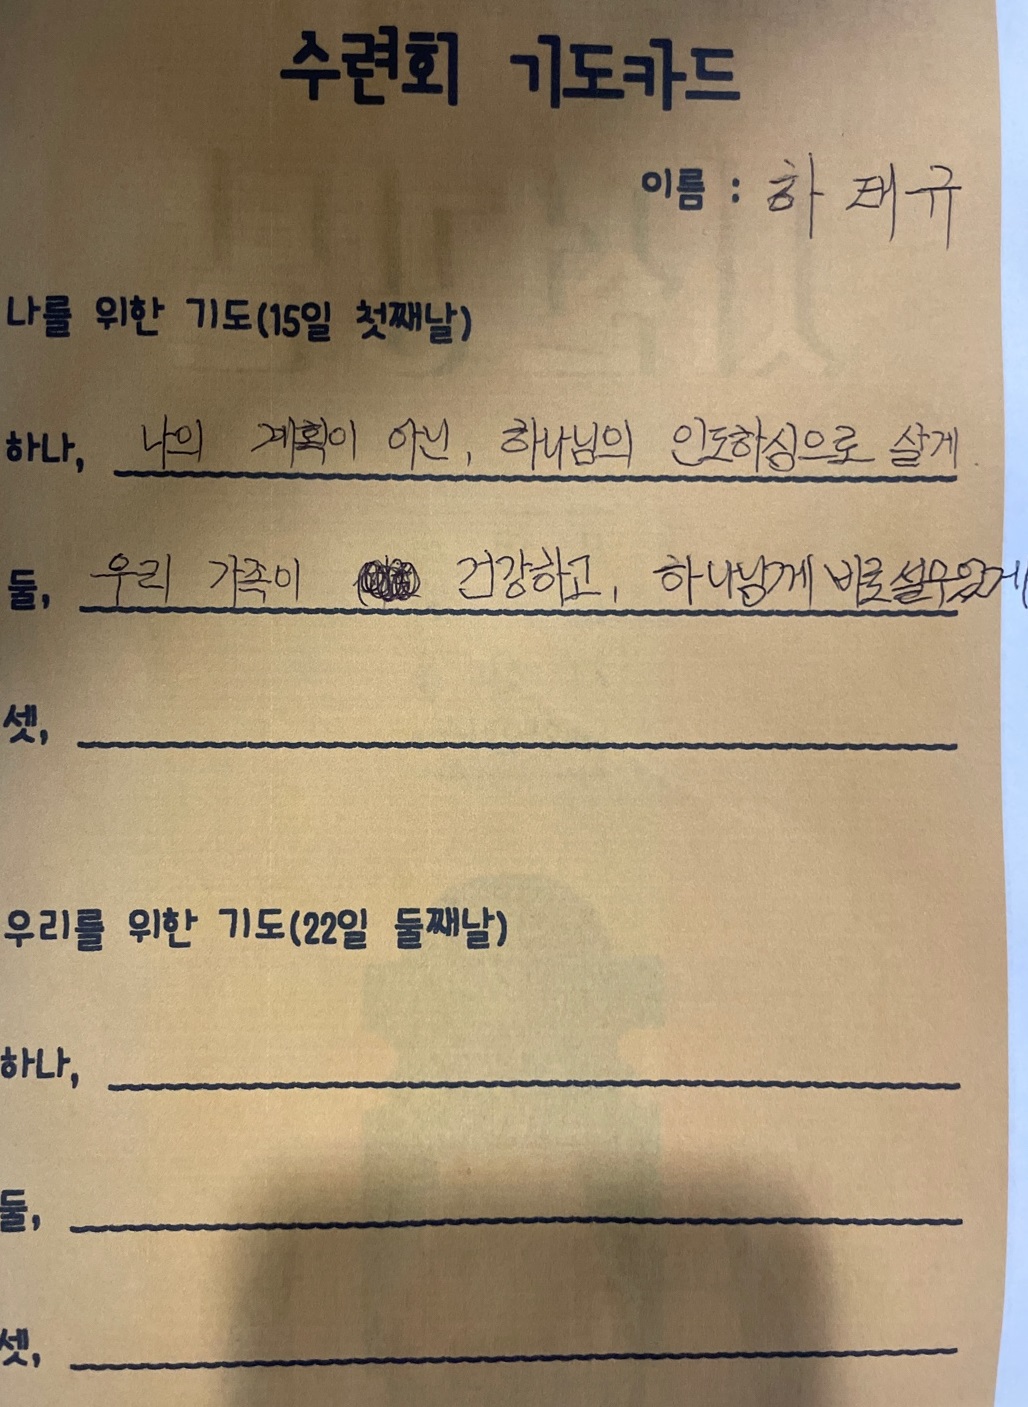 수련회 기도카드
이름 : 하태규
나를 위한 기도(15일 첫째날)
하나, 나의 계획이 아닌, 하나님의 인도하심으로 살게.
둘, 우리 가족이 건강하고, 하나님께 바로설수있게
셋,
우리를 위한 기도(22일 둘째날)
하나,
둘,
셋,